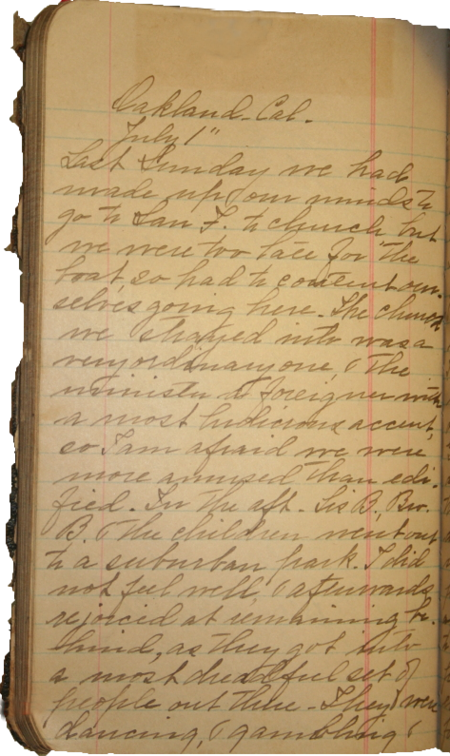 Oakland - Cal.
July 1"
Last Sunday we had
made up our minds to
go to San F. to church but
we were too late for the
boat, so had to content our-
selves going here - The church
we strayed into was a
very ordinary one, & the
minister a foreigner with
a most ludicrous accent,
so I am afraid we were
more amused than edi-
fied. In the aft. Sis B, Bro.
B. & the children went out
to a suburban park. I did
not feel well, & afterwards
rejoiced at remaining be-
hind, as they got into
a most dreadful set of
people out there - They were
dancing, & gambling &